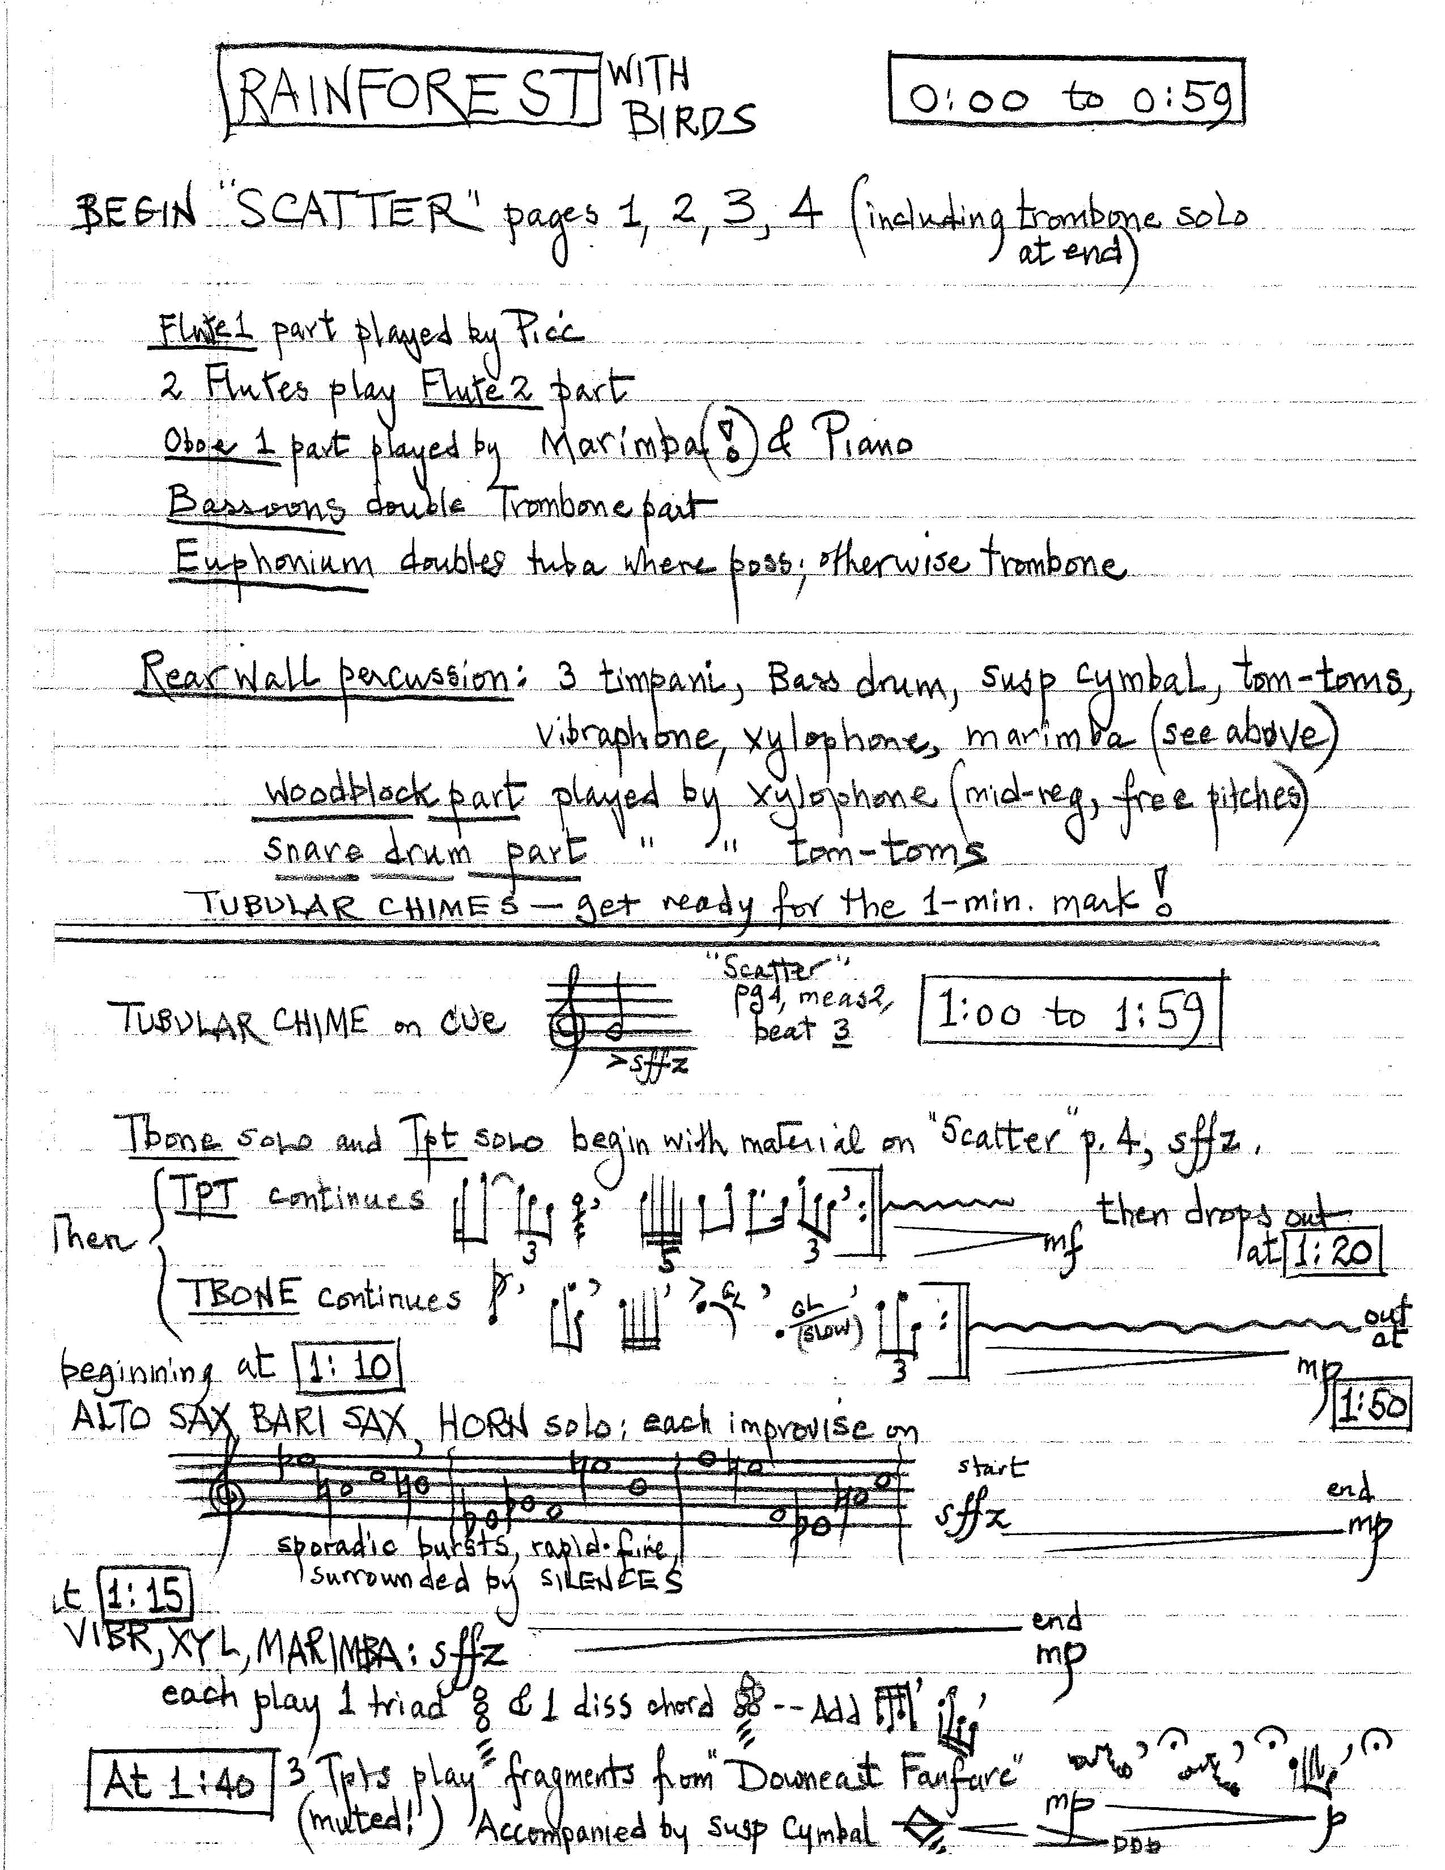 RAINFOREST WITH BIRDS
0:00 to 0:59
BEGIN "SCATTER" pages 1, 2, 3, 4 (including trombone solo
at end)
Flute 1 part played by Picc
2 Flutes play Flute 2 part
Oboe 1 part played by Marimba (!) & Piano
Bassoons double Trombone part
Euphonium doubles tuba where poss; otherwise trombone
Rear wall percussion: 3 timpani, Bass drum, susp cymbal, tom-toms,
vibraphone, xylophone, marimba (see above)
woodblock part played by xylophone (mid-reg, free pitches)
snare drum part " " tom-toms
TUBULAR CHIMES — get ready for the 1-min. mark!
TUBULAR CHIME on cue
>sffz
"Scatter"
pg 4, meas 2,
beat 3
1:00 to 1:59
Tbone solo and Tpt solo begin with material on "Scatter" p. 4, sffz.
Then
TPT continues
3
5
3
mf
then drops out
at 1:20
TBONE continues
GL
GL
(SLOW)
3
mp
out
at
1:50
beginning at 1:10
ALTO SAX, BARI SAX, HORN solo: each improvise on
start
sffz
end
mp
sporadic bursts, rapid-fire,
surrounded by SILENCES
1:15
VIBR, XYL, MARIMBA: sffz
end
mp
each play 1 triad & 1 diss chord -- Add
At 1:40
3 Tpts play fragments from "Downeast Fanfare"
(muted!) Accompanied by susp cymbal
mp
p
ppp